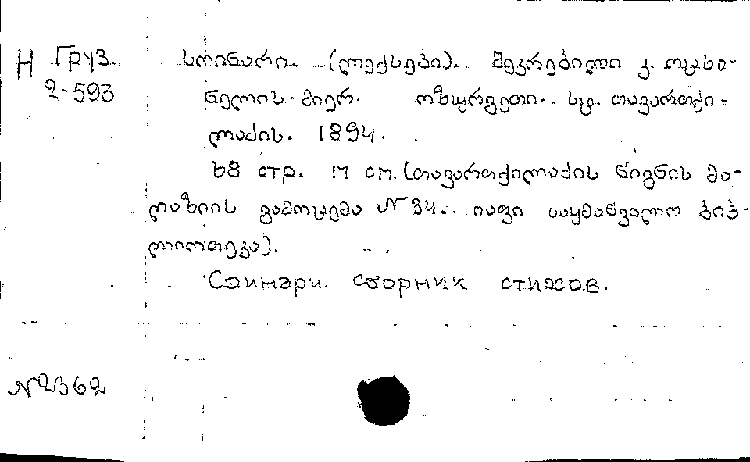 Н Груз. სოინარი. (ლექსები). შეკრებილი კ. თავაი-
2-593 ნელის მიერ. ოზურგეთი. სტ. თავართქი-
ლაძის. 1894.
68 стр. 17 см. (თავართქილაძის წიგნის მა-
ღაზიის გამოცემა №34. იაფი საყმაწვილო ბიბ-
ლიოთეკა).
Соинари. сборник стихов.
№2362